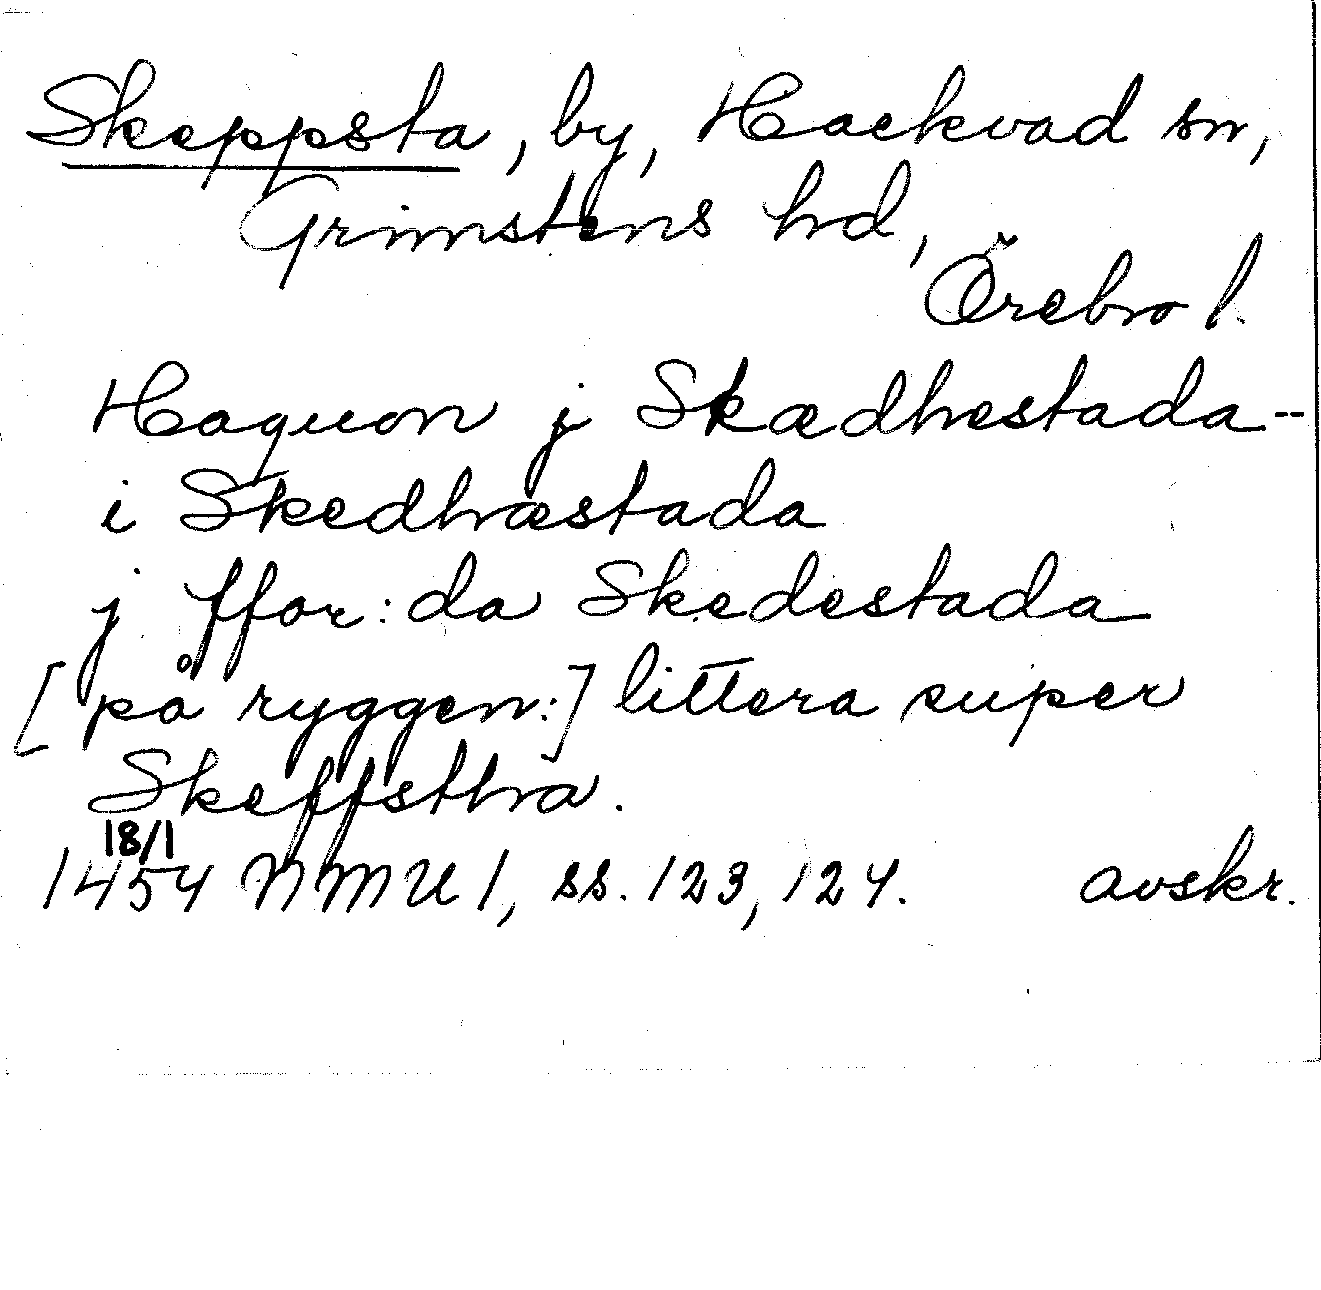 Skeppsta, by, Hackvad sn,
Grimstens hd,
Örebro l.
Haquon j Skædhestada--
i Skedhæstada
j ffor: da Skedestada
[på ryggen:] littera super
Skeffstha.
18/1
1454 NMU 1, ss. 123, 124. avskr.